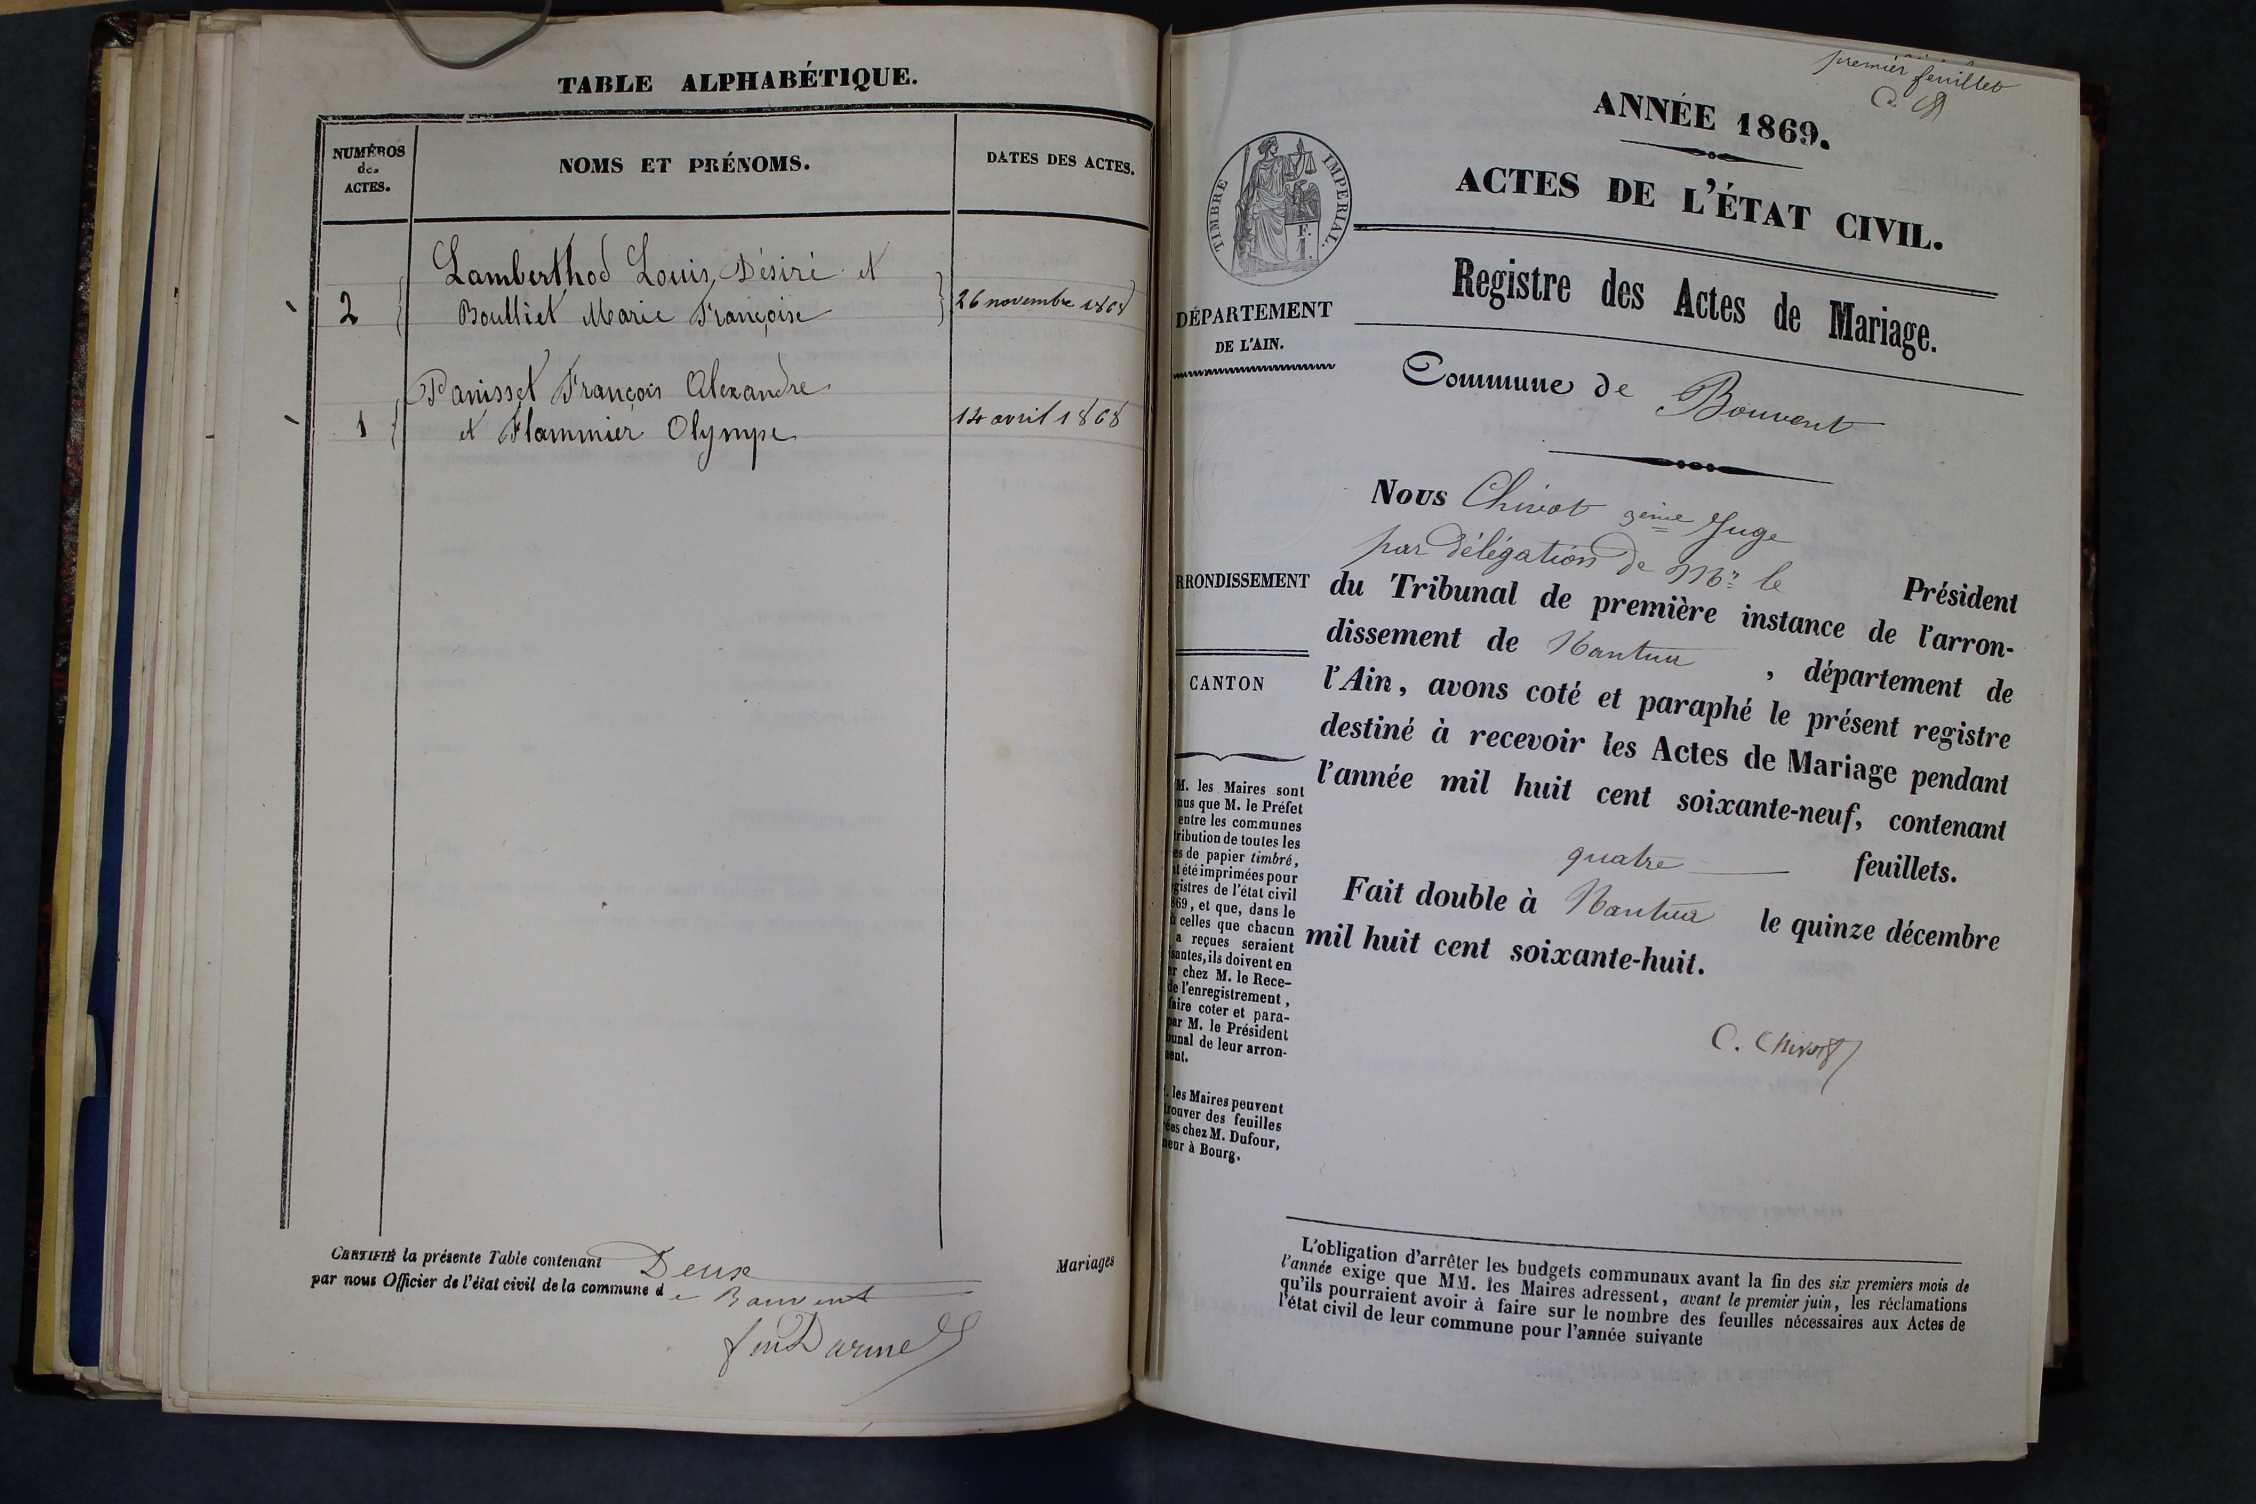 TABLE ALPHABÉTIQUE.
NUMÉROS
des
ACTES.
NOMS ET PRÉNOMS.
DATES DES ACTES.
Lamberthod Louis, Désiré et
2
Boulliet Marie Françoise
26 novembre 1868
Panisset François Alexandre
1
et Flammier Olympe
14 avril 1868
CERTIFIÉ la présente Table contenant Deux Mariages
par nous Officier de l'état civil de la commune de Bouvent
premier feuillet
ANNÉE 1869.
ACTES DE L'ÉTAT CIVIL.
TIMBRE IMPÉRIAL.
1 F.
Registre des Actes de Mariage.
DÉPARTEMENT
DE L'AIN.
Commune de Bouvent
Nous Chivot 3ème Juge
par délégation de Mr le Président
RRONDISSEMENT
du Tribunal de première instance de l'arron-
dissement de Nantua, département de
CANTON
l'Ain, avons coté et paraphé le présent registre
destiné à recevoir les Actes de Mariage pendant
l'année mil huit cent soixante-neuf, contenant
quatre feuillets.
Fait double à Nantua le quinze décembre
mil huit cent soixante-huit.
C. Chivot
M. les Maires sont
nus que M. le Préfet
entre les communes
tribution de toutes les
es de papier timbré,
t été imprimées pour
gistres de l'état civil
869, et que, dans le
celles que chacun
a reçues seraient
santes, ils doivent en
er chez M. le Rece-
de l'enregistrement,
faire coter et para-
par M. le Président
bunal de leur arron-
ment.
. les Maires peuvent
trouver des feuilles
ées chez M. Dufour,
meur à Bourg.
L'obligation d'arrêter les budgets communaux avant la fin des six premiers mois de
l'année exige que MM. les Maires adressent, avant le premier juin, les réclamations
qu'ils pourraient avoir à faire sur le nombre des feuilles nécessaires aux Actes de
l'état civil de leur commune pour l'année suivante